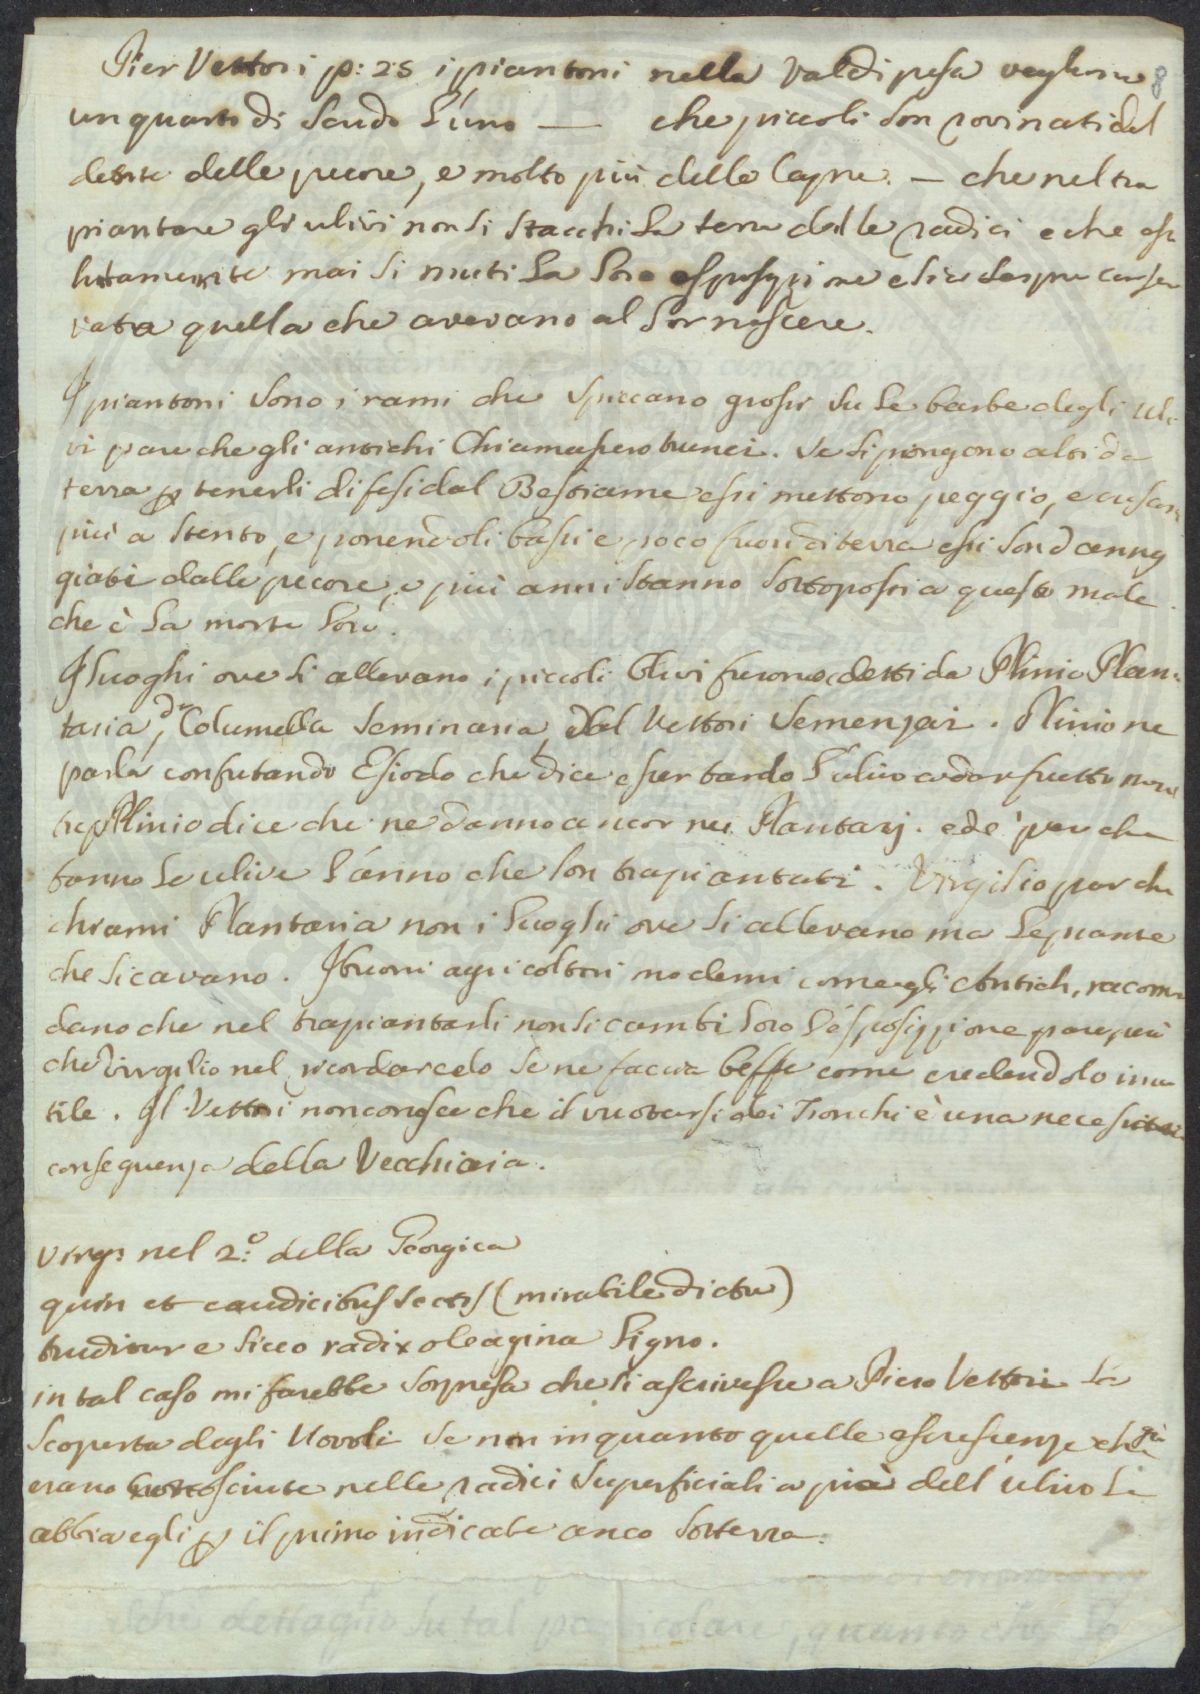 Pier Vettori p: 25 i piantoni nella Valdipesa vagliono 8
un quarto di Scudo l'uno — che piccoli son rovinati dal
dente delle pecore, e molto più delle Capre. — che nel tra
piantare gli ulivi non si stacchi la terra dalle radici e che aso
lutamente mai si muti la loro esposizzione e sia sempre conser
vata quella che avevano al lor nascere.
I piantoni sono i rami che spiccano grossi su le barbe degli Uli
vi pare che gli antichi Chiamassero trunci. Se si pongono alti da
terra p tenerli difesi dal Bestiame essi mettono peggio, e
più a stento, e ponendoli bassi e poco fuori di terra essi son danneg
giati dalle pecore, e più anni stanno sottoposti a questo male
che è la morte loro.
I luoghi ove si allevano i piccoli Ulivi furono detti da Plinio Plan=
taria, da Columella Seminaria, dal Vettori Semenzai. Plinio ne
parla confutando Esiodo che dice esser tardo l'ulivo a dar frutto men
tre Plinio dice che ne danno ancor nei Plantarj. ed è per che
fanno le ulive l'anno che son trapiantati. Virgilio par che
chiami Plantaria non i luoghi ove si allevano ma le piante
che si cavano. I buoni agricoltori moderni come gli Antich, racom
dano che nel trapiantarli non si cambi loro l'esposizzione pare più
che Virgilio nel ricordarcelo se ne faccia beffe come credendolo inu
tile. Il Vettori non conosce che il vuotarsi dei Tronchi è una necessaria
conseguenza della Vecchiaia.
Virg: nel 2:º della Georgica
quin et caudicibus sectis (mirabile dictu)
truditur e sicco radix oleagina ligno.
in tal caso mi farebbe sorpresa che si ascrivesse a Piero Vettori la
scoperta degli Uovoli se non in quanto quelle escrescenze che già
erano conosciute nelle radici superficiali a piè dell'ulivo le
abbia egli p il primo indicate anco sotterra.